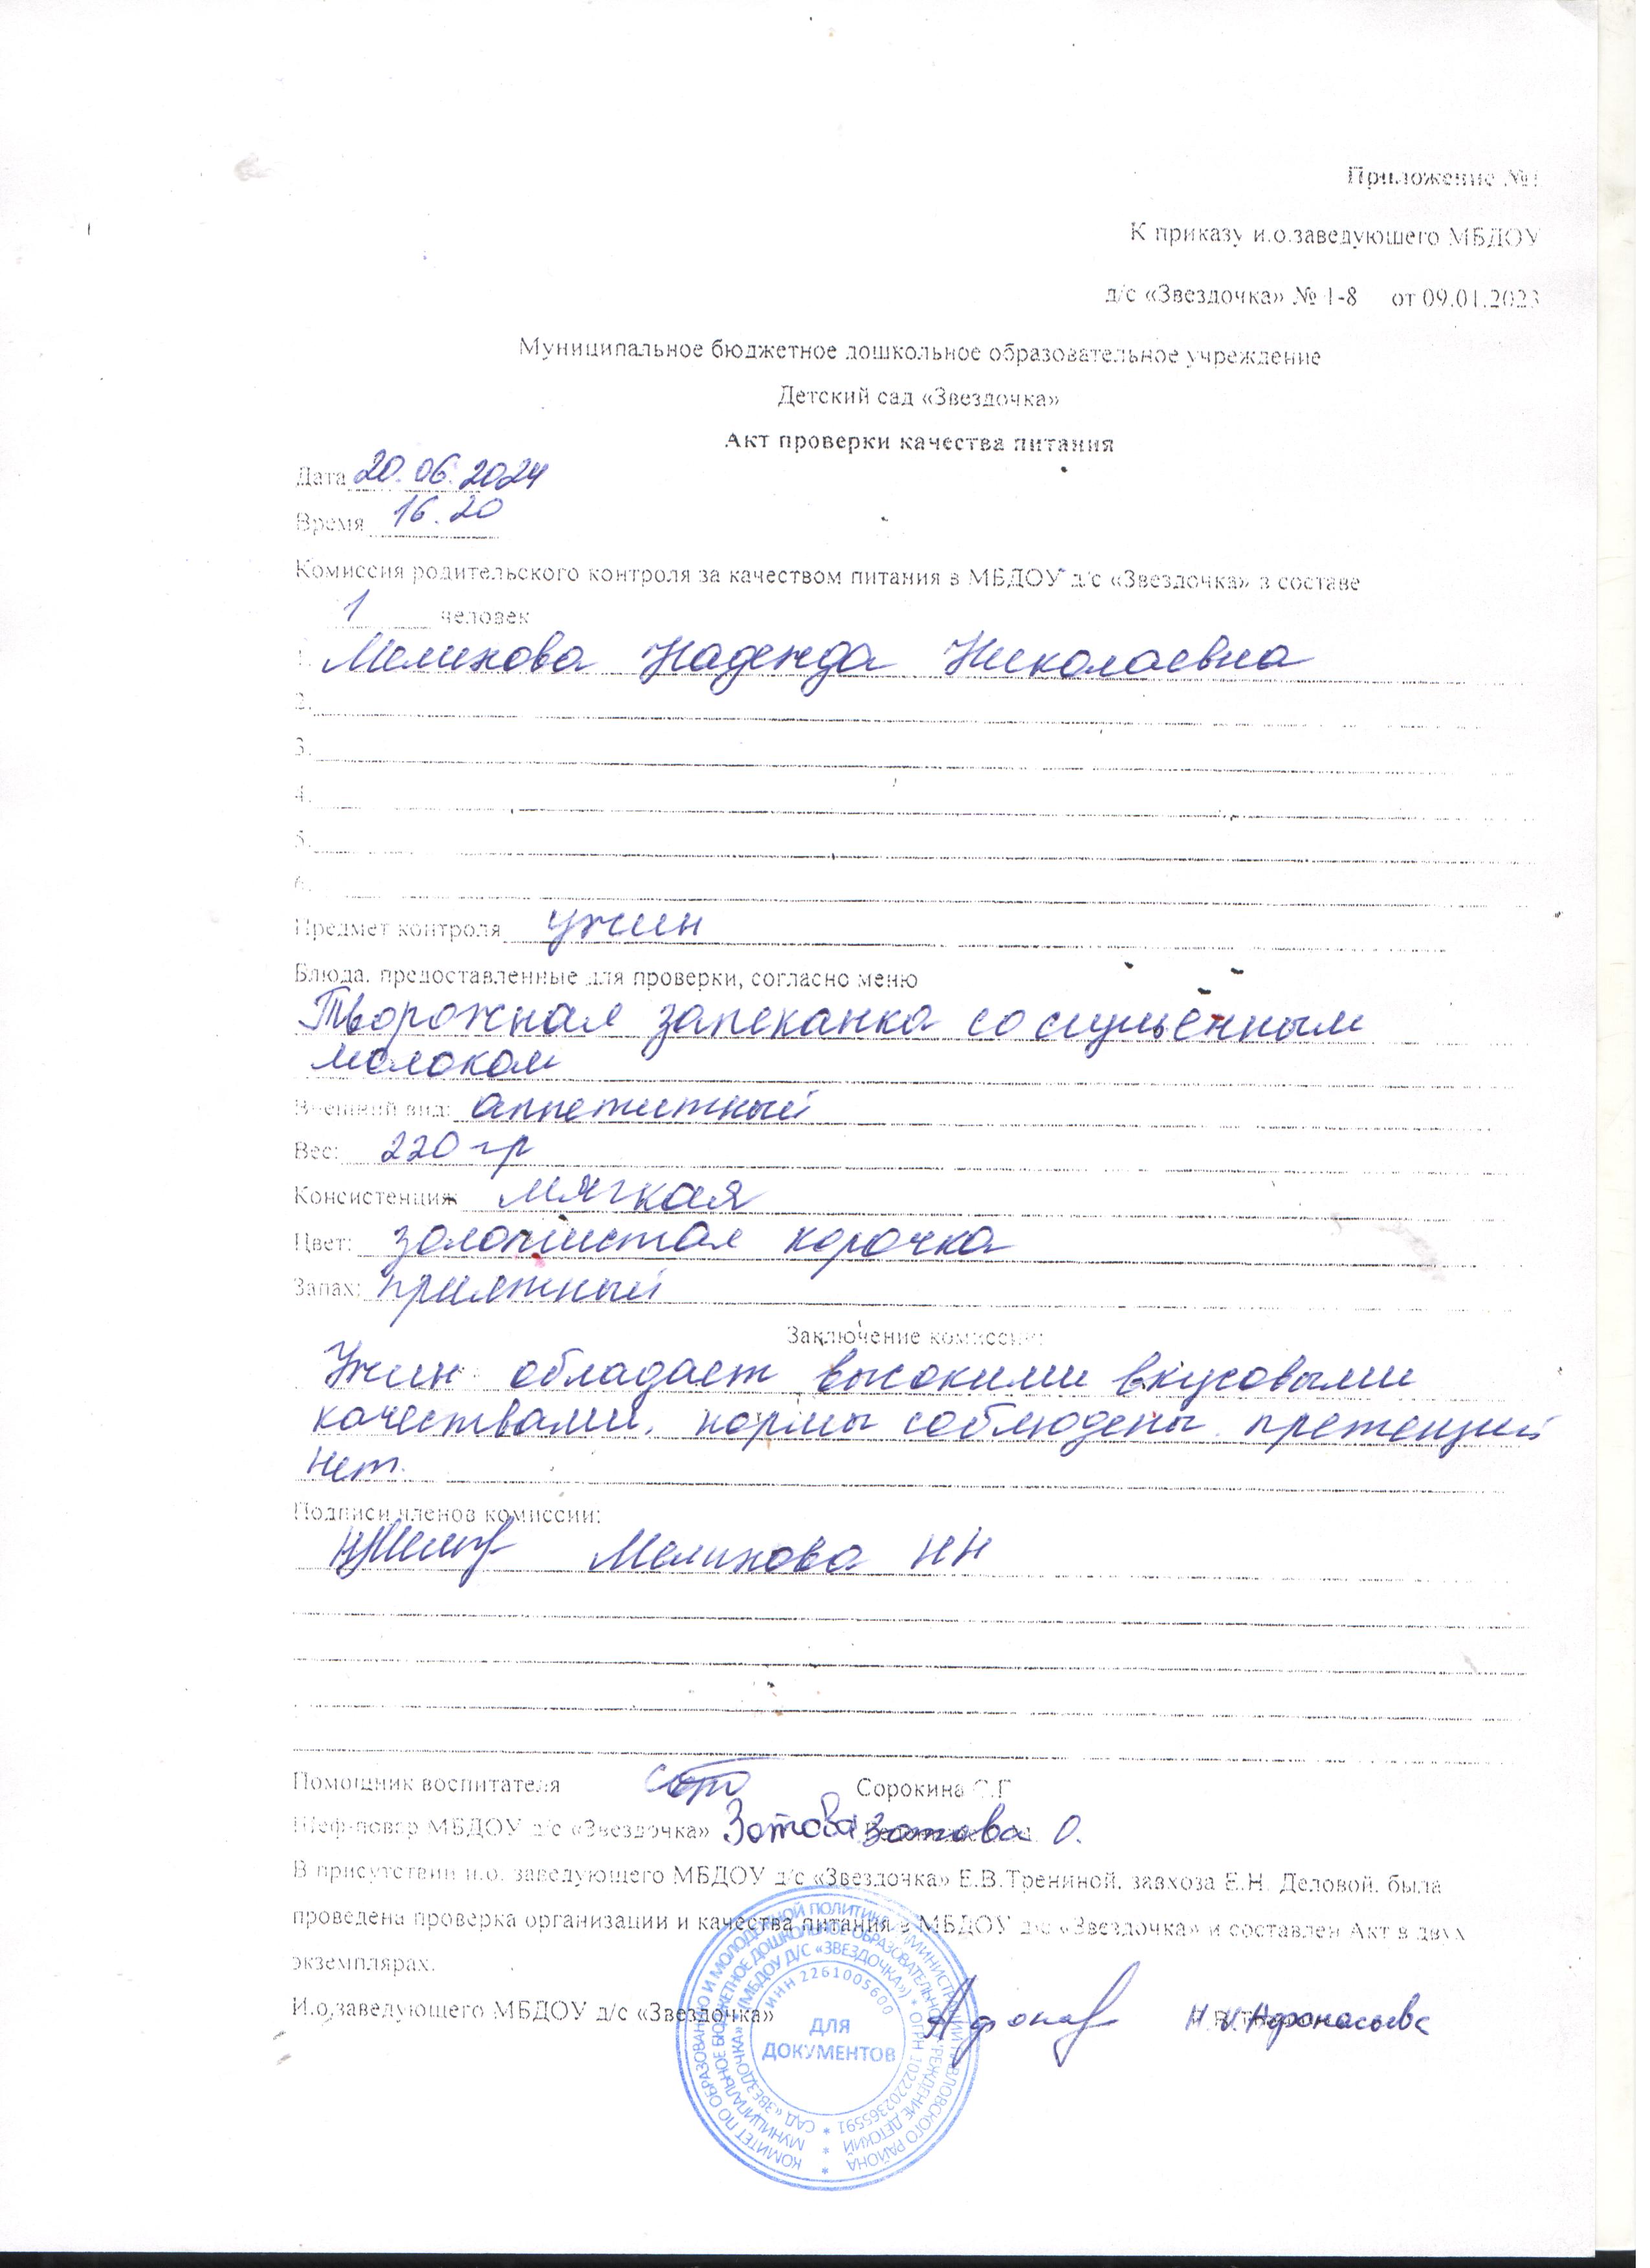 Приложение №1
К приказу и.о.заведующего МБДОУ
д/с «Звездочка» № 1-8 от 09.01.2023
Муниципальное бюджетное дошкольное образовательное учреждение
Детский сад «Звездочка»
Акт проверки качества питания
Дата 20.06.2024
Время 16.20
Комиссия родительского контроля за качеством питания в МБДОУ д/с «Звездочка» в составе
1 человек
1. Мелихова Надежда Николаевна
2.
3.
4.
5.
6.
Предмет контроля ужин
Блюда, предоставленные для проверки, согласно меню
Творожная запеканка со сгущённым
молоком
Внешний вид: аппетитный
Вес: 220 гр
Консистенция: мягкая
Цвет: золотистая корочка
Запах: приятный
Заключение комиссии:
Ужин обладает высокими вкусовыми
качествами, нормы соблюдены претенций
нет.
Подписи членов комиссии:
Мелихова НН
Помощник воспитателя Сорокина С.Г
Шеф-повар МБДОУ д/с «Звездочка» Зотова Зотова О.
В присутствии и.о. заведующего МБДОУ д/с «Звездочка» Е.В.Трениной, завхоза Е.Н. Деловой, была
проведена проверка организации и качества питания в МБДОУ д/с «Звездочка» и составлен Акт в двух
экземплярах.
И.о.заведующего МБДОУ д/с «Звездочка» Н.И. Афонасьева
КОМИТЕТ ПО ОБРАЗОВАНИЮ И МОЛОДЕЖНОЙ ПОЛИТИКЕ АДМИНИСТРАЦИИ ПАВЛОВСКОГО РАЙОНА
МУНИЦИПАЛЬНОЕ БЮДЖЕТНОЕ ДОШКОЛЬНОЕ ОБРАЗОВАТЕЛЬНОЕ УЧРЕЖДЕНИЕ ДЕТСКИЙ
САД «ЗВЕЗДОЧКА» (МБДОУ Д/С «ЗВЕЗДОЧКА») * ОГРН 1022202365591 *
ИНН 2261005600
ДЛЯ
ДОКУМЕНТОВ